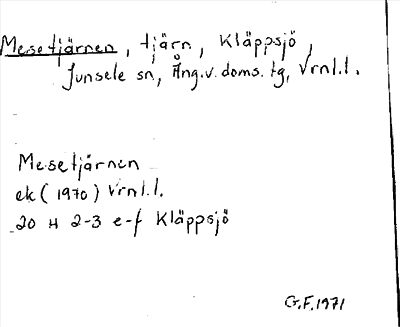 Mesetjärnen, tjärn, Kläppsjö,
Junsele sn, Ång.v.doms.tg, Vrnl.l.
Mesetjärnen
ek (1970) Vrnl.l.
20 H 2-3 e-f Kläppsjö
G.F.1971